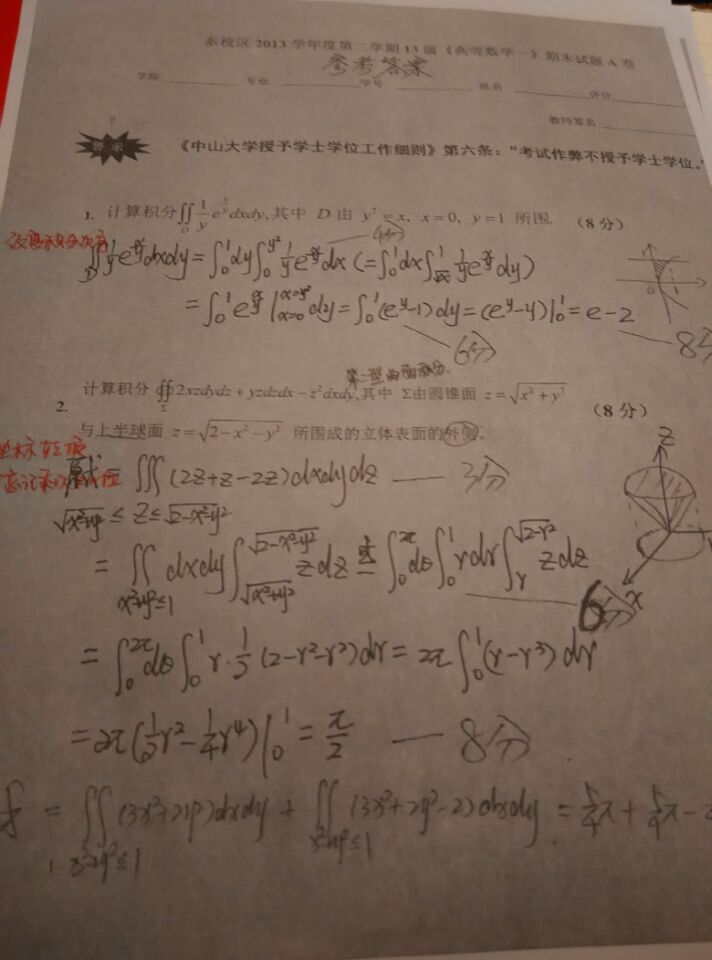 东校区 2013 学年度第二学期 13 级《高等数学一》期末试题 A 卷
参考答案
学院 专业 学号 姓名 评分
教师签名
警示 《中山大学授予学士学位工作细则》第六条：“考试作弊不授予学士学位。”
1. 计算积分 ∬_D 1/y e^{x/y} dxdy, 其中 D 由 y² = x, x = 0, y = 1 所围. （8 分）
∬_D 1/y e^{x/y} dxdy = ∫₀¹ dy ∫₀^{y²} 1/y e^{x/y} dx (= ∫₀¹ dx ∫_{√x}^1 1/y e^{x/y} dy) 4分
= ∫₀¹ e^{x/y} |_{x=0}^{x=y²} dy = ∫₀¹ (e^y - 1) dy = (e^y - y)|₀¹ = e - 2
6分 8分
0 1
第二型曲面积分.
2. 计算积分 ∯_Σ 2xzdydz + yzdzdx - z²dxdy, 其中 Σ 由圆锥面 z = √(x² + y²)
与上半球面 z = √(2 - x² - y²) 所围成的立体表面的外侧。 （8 分）
原式 = ∭ (2z + z - 2z) dxdydz — 3分
√(x²+y²) ≤ z ≤ √(2-x²-y²)
z
= ∬_{x²+y²≤1} dxdy ∫_{√(x²+y²)}^{√(2-x²-y²)} z dz = ∫₀^{2π} dθ ∫₀¹ r dr ∫_r^{√(2-r²)} z dz
6分 x
= ∫₀^{2π} dθ ∫₀¹ r · 1/2 (2 - r² - r²) dr = 2π ∫₀¹ (r - r³) dr
= 2π (1/2 r² - 1/4 r⁴)|₀¹ = π/2 — 8分
= ∬_{x²+y²≤1} (3x² + 2y²) dxdy + ∬_{x²+y²≤1} (3x² + 2y² - 2) dxdy = 5/4 π + 5/4 π -